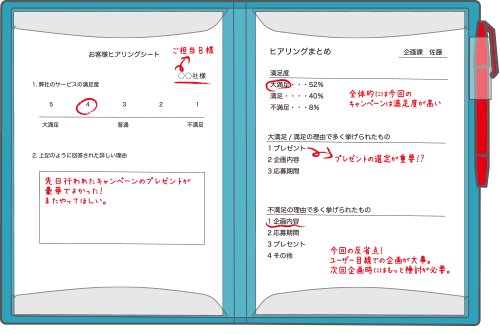 お客様ヒアリングシート
ご担当日様
○○社様
1. 弊社のサービスの満足度
5 4 3 2 1
大満足 普通 不満足
2. 上記のように回答された詳しい理由
先日行われたキャンペーンのプレゼントが
豪華でよかった!
またやってほしい。
ヒアリングまとめ
企画課 佐藤
満足度
大満足・・・52%
満足・・・40%
不満足・・・8%
全体的には今回の
キャンペーンは満足度が高い
大満足 / 満足の理由で多く挙げられたもの
1 プレゼント
2 企画内容
3 応募期間
プレゼントの選定が重要!?
不満足の理由で多く挙げられたもの
1 企画内容
2 応募期間
3 プレゼント
4 その他
今回の反省点!
ユーザー目線での企画が大事。
次回企画時にはもっと検討が必要。